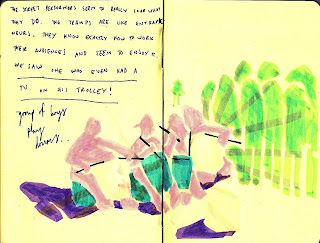 THE STREET PERFORMERS SEEM TO REALLY LOVE WHAT
THEY DO. THE TRAMPS ARE LIKE ENTREPRE
NEURS. THEY KNOW EXACTLY HOW TO WORK
THEIR AUDIENCES AND SEEM TO ENJOY IT.
WE SAW ONE WHO EVEN HAD A
TV ON HIS TROLLEY!
group of boys
play